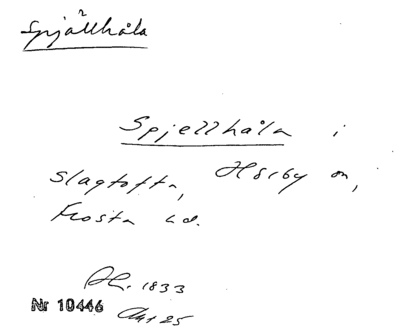 Spjällhåla
Spjellhåla i
Slagtofta, Hörby sn,
Frosta hd.
1833
Nr 10446 Akt 25